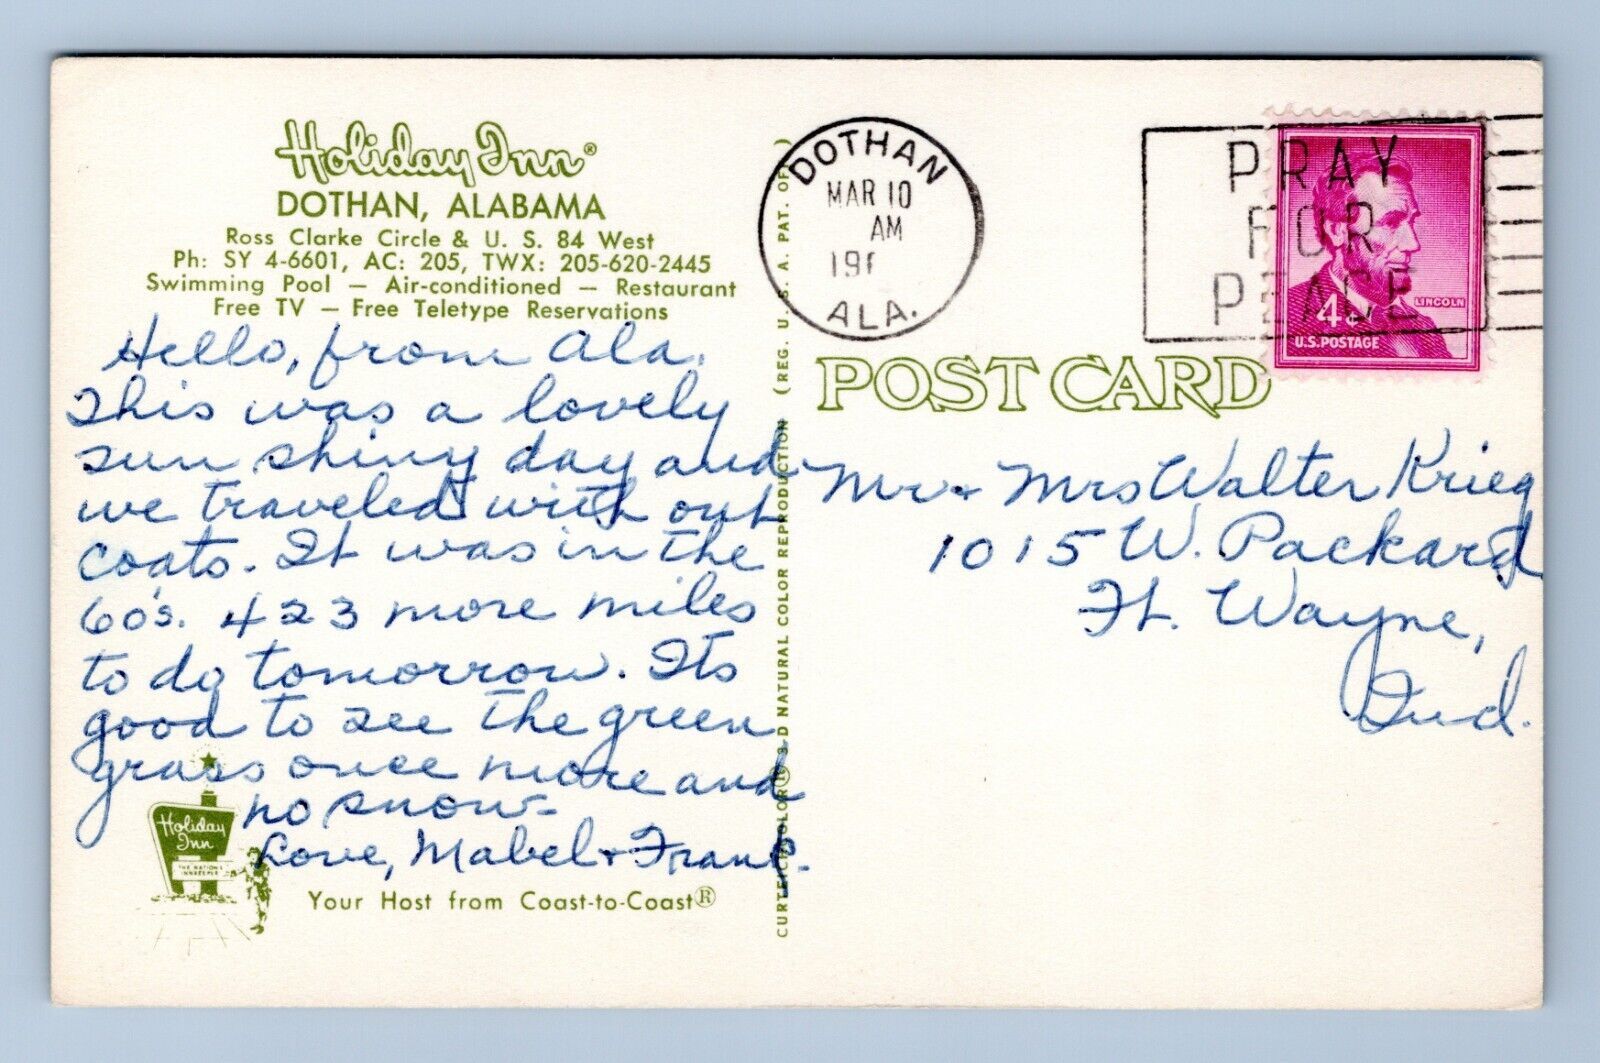 Holiday Inn®
DOTHAN, ALABAMA
Ross Clarke Circle & U. S. 84 West
Ph: SY 4-6601, AC: 205, TWX: 205-620-2445
Swimming Pool — Air-conditioned — Restaurant
Free TV — Free Teletype Reservations
Hello, from Ala.
This was a lovely
sun shiny day and
we traveled with out
coats. It was in the
60's. 423 more miles
to do tomorrow. Its
good to see the green
grass once more and
no snow-
Love, Mabel + Frank.
Holiday
Inn
THE NATION'S
INNKEEPER
Your Host from Coast-to-Coast®
CURTEICHCOLOR® 3-D NATURAL COLOR REPRODUCTION (REG. U. S. A. PAT. OFF.)
DOTHAN
MAR 10
AM
196
ALA.
PRAY
FOR
PEACE
LINCOLN
4¢
U.S. POSTAGE
POST CARD
Mr + Mrs Walter Krieg
1015 W. Packard
Ft. Wayne,
Ind.